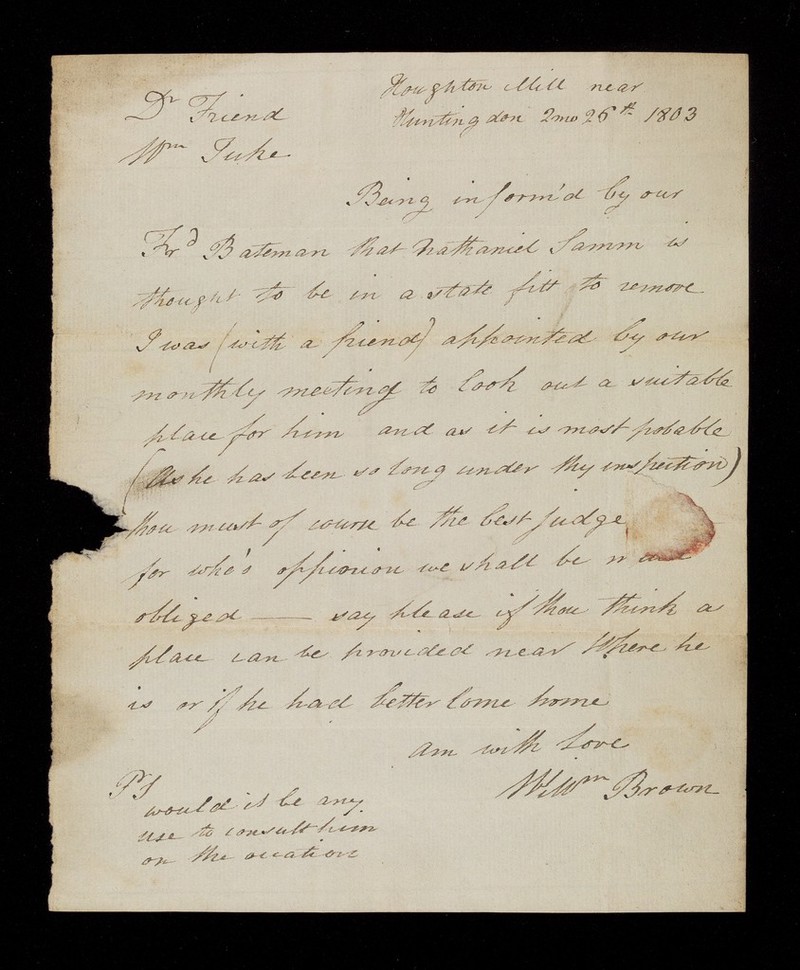 Houghton Mill near
Huntingdon 2mo 26th 1803
Dr Friend
Wm Tuke
Being inform'd by our
Frd Bateman that Nathaniel Samm is
thought to be in a state fitt to remove
I was (with a friend) appointed by our
monthly meeting to look out a suitable
place for him and as it is most pobable
(As he has been so long under thy inspection)
thou must of course be the best judge
for who's oppinion we shall be
obliged — say please if thou think a
place can be provided near Where he
is or if he had better Come home
am with Love
Wm Brown
PS
would it be any
use to consult him
on the occation